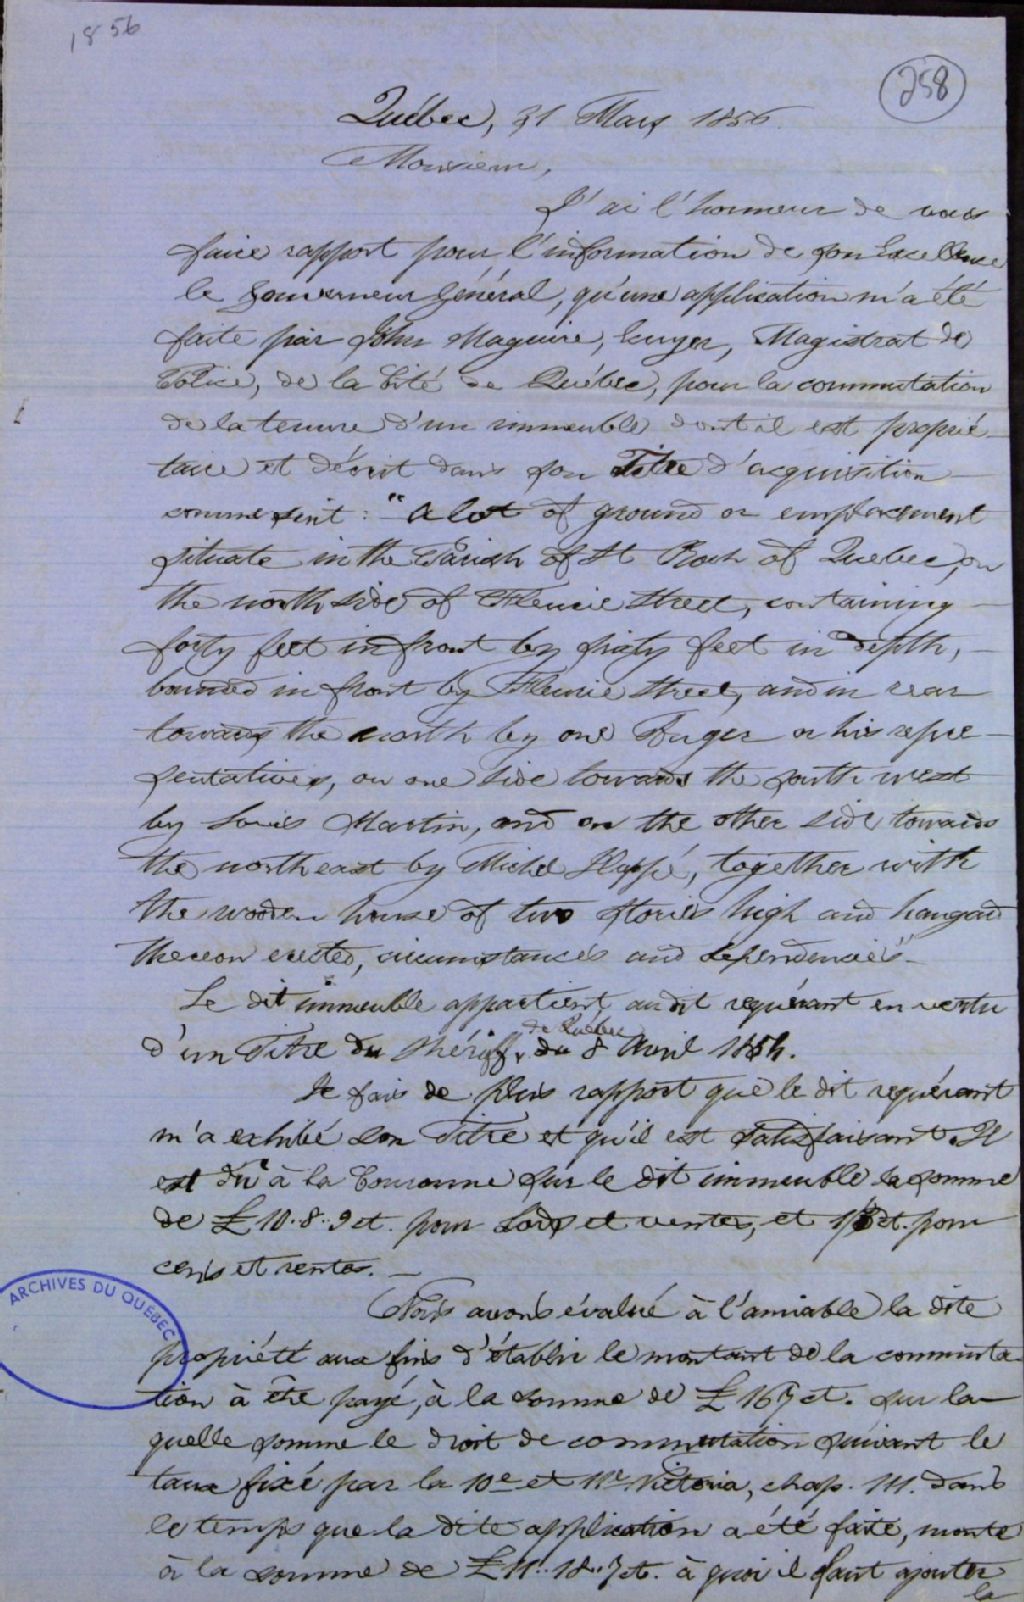 1856
258
Québec, 31 Mars 1856.
Monsieur,
J'ai l'honneur de vous
faire rapport pour l'information de Son Excellence
le Gouverneur Général, qu'une application m'a été
faite par John Maguire, Ecuyer, Magistrat de
Police, de la Cité de Québec, pour la commutation
de la tenure d'un immeuble dont il est proprié-
taire et décrit dans son Titre d'acquisition
comme suit: "A lot of ground or emplacement
situate in the Parish of St Roch of Quebec, on
the north side of Fleurie Street, containing
forty feet in front by sixty feet in depth,
bounded in front by Fleurie Street, and in rear
towards the north by one Auger or his repre-
sentatives, on one side towards the south west
by Louis Martin, and on the other side towards
the north east by Michel, together with
the wooden house of two stories high and hangard
thereon erected, circumstances and dependencies"
Le dit immeuble appartient au dit requérant en vertu
d'un Titre du Shériff de Québec du 8 Avril 1854.
Je fais de plus rapport que le dit requérant
m'a exhibé son Titre et qu'il est satisfaisant. Il
est dû à la Couronne sur le dit immeuble la somme
de £10..8..9 ct. pour Lods et ventes, et ct. pour
cens et rentes.
Nous avons évalué à l'amiable la dite
propriété aux fins d'établir le montant de la commuta-
tion à être payé, à la somme de £167 ct. sur la-
quelle somme le droit de commutation suivant le
taux fixé par la 10e et 11e Victoria, chap. 111. dans
le temps que la dite application a été faite, monte
à la somme de £11..18..7 ct. à quoi il faut ajouter
la
ARCHIVES DU QUÉBEC